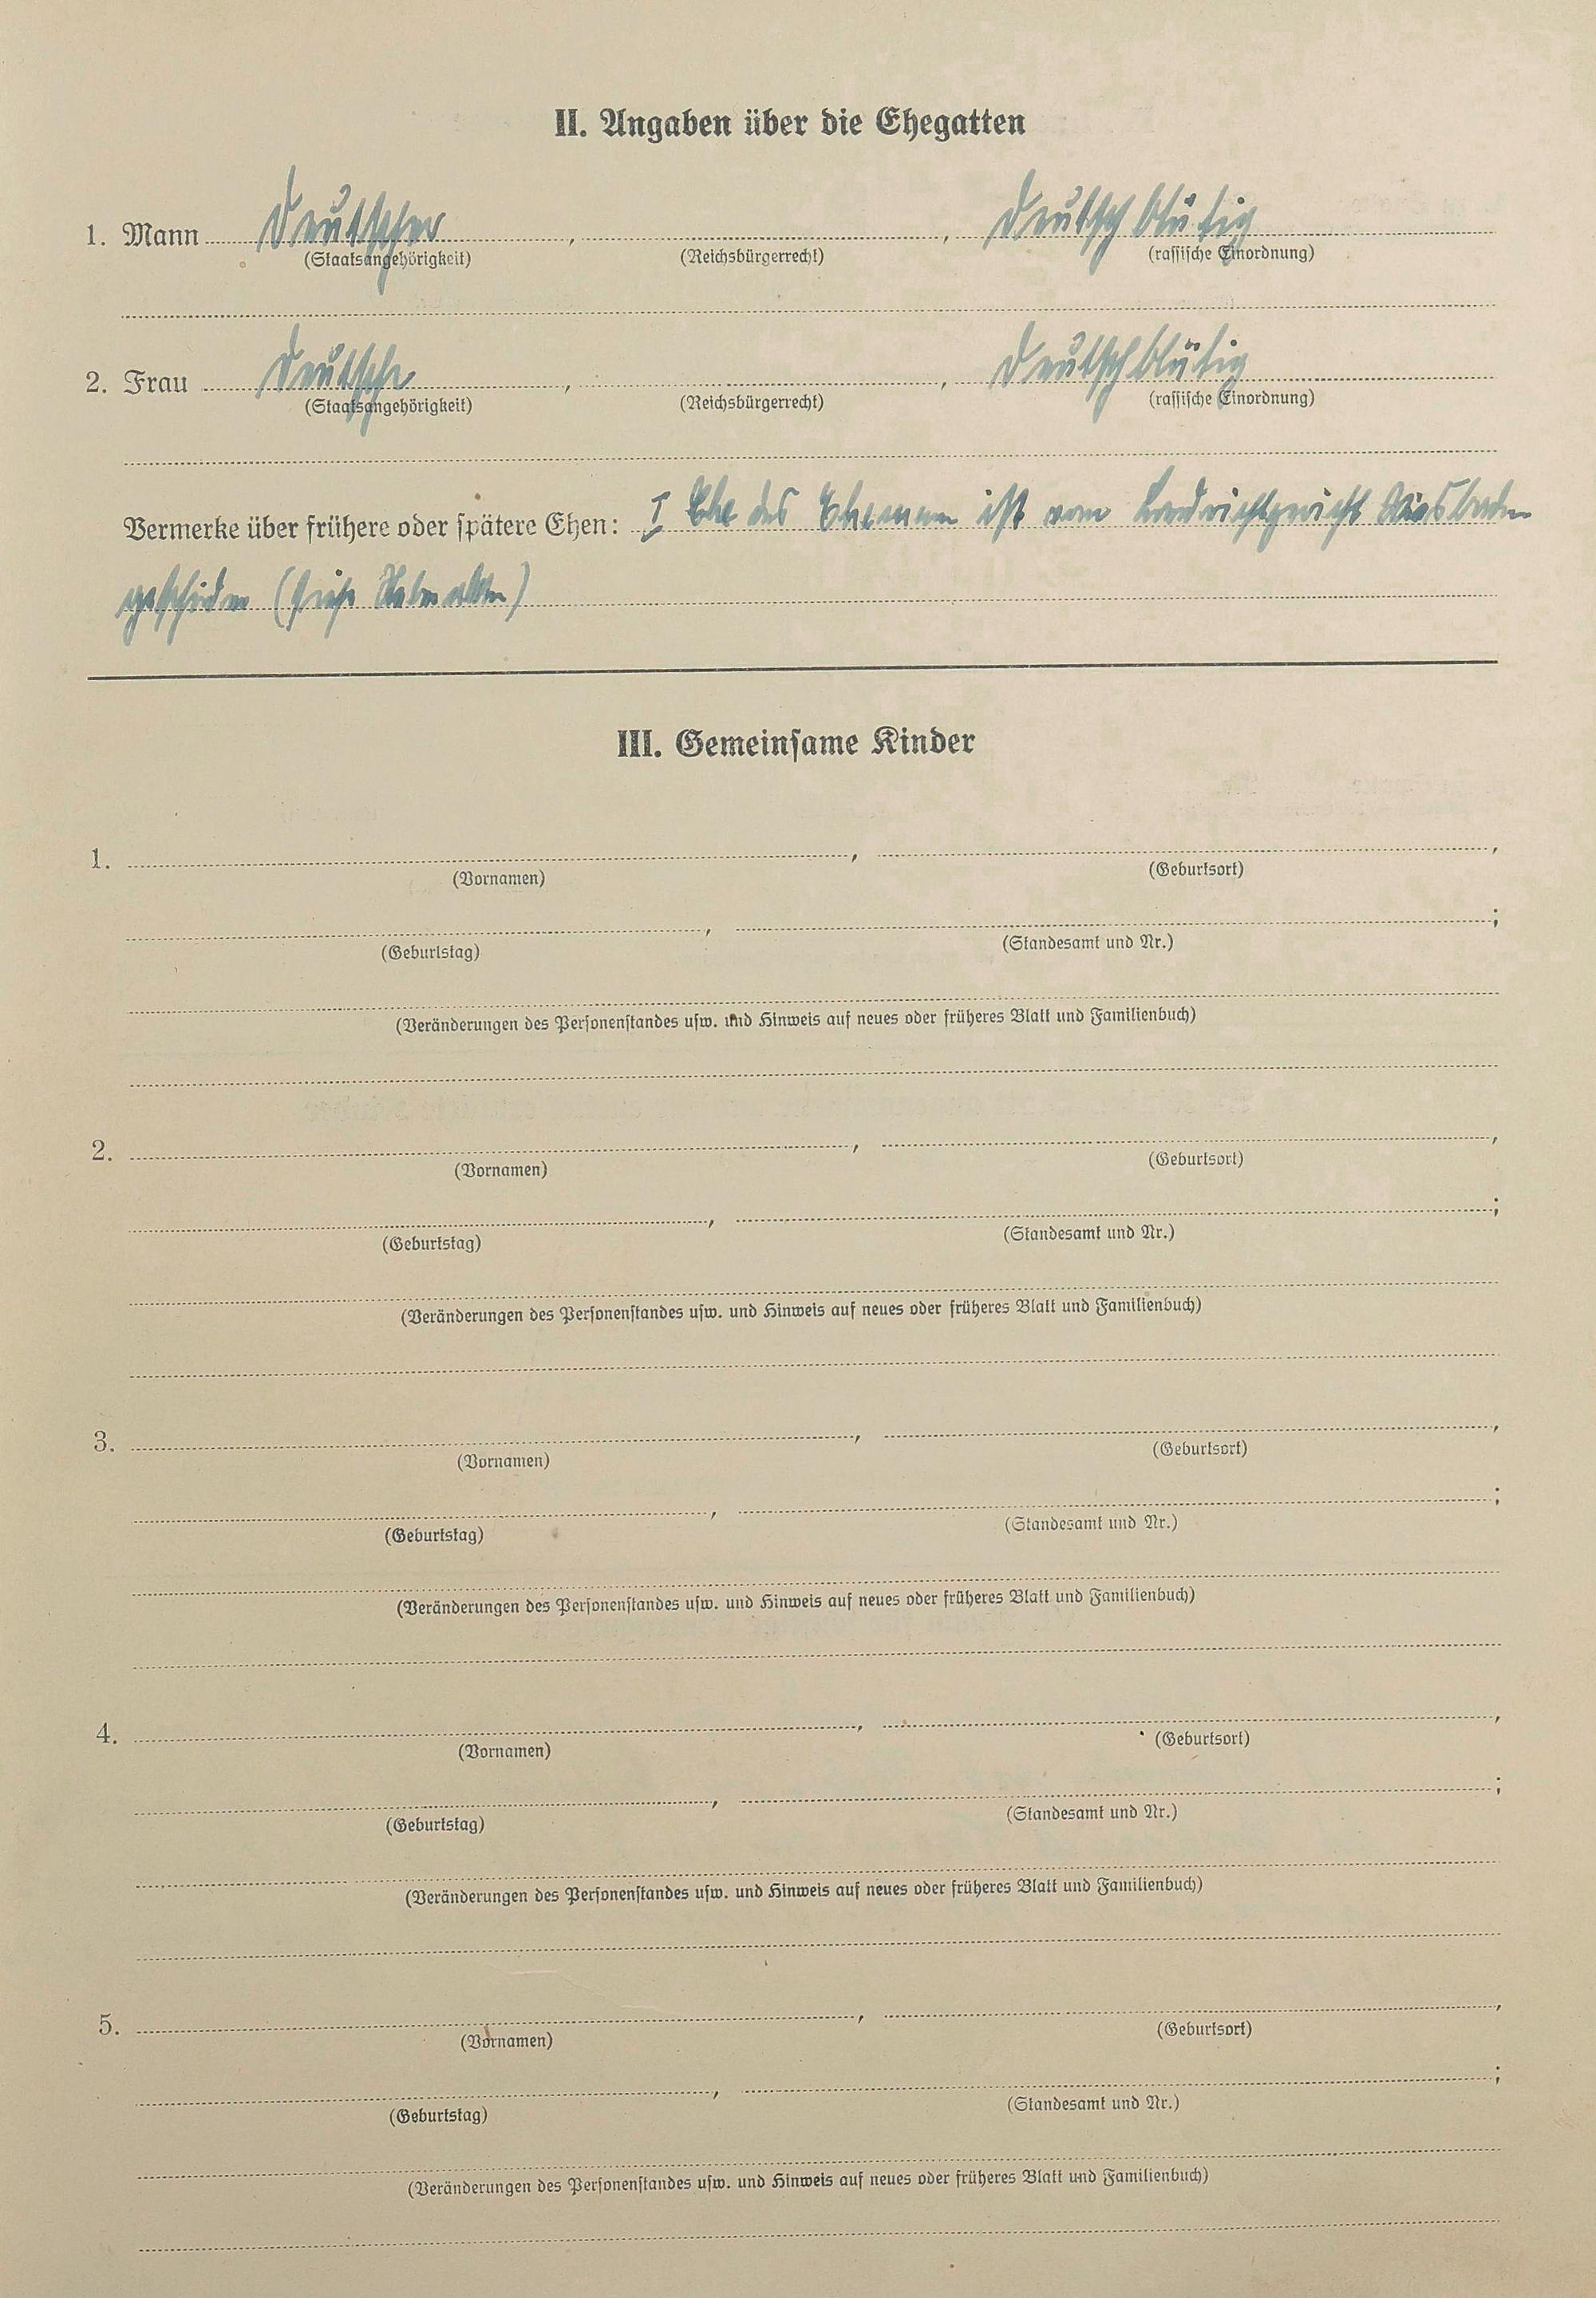 II. Angaben über die Ehegatten
1. Mann Deutscher, , Deutschblütig
(Staatsangehörigkeit) (Reichsbürgerrecht) (rassische Einordnung)
2. Frau Deutsche, , Deutschblütig
(Staatsangehörigkeit) (Reichsbürgerrecht) (rassische Einordnung)
Vermerke über frühere oder spätere Ehen: I Ehe des Ehemann ist vom Wiesbaden
geschieden (siehe Nebenakten)
III. Gemeinsame Kinder
1. , ,
(Vornamen) (Geburtsort)
, ;
(Geburtstag) (Standesamt und Nr.)
(Veränderungen des Personenstandes usw. und Hinweis auf neues oder früheres Blatt und Familienbuch)
2. , ,
(Vornamen) (Geburtsort)
, ;
(Geburtstag) (Standesamt und Nr.)
(Veränderungen des Personenstandes usw. und Hinweis auf neues oder früheres Blatt und Familienbuch)
3. , ,
(Vornamen) (Geburtsort)
, ;
(Geburtstag) (Standesamt und Nr.)
(Veränderungen des Personenstandes usw. und Hinweis auf neues oder früheres Blatt und Familienbuch)
4. , ,
(Vornamen) (Geburtsort)
, ;
(Geburtstag) (Standesamt und Nr.)
(Veränderungen des Personenstandes usw. und Hinweis auf neues oder früheres Blatt und Familienbuch)
5. , ,
(Vornamen) (Geburtsort)
, ;
(Geburtstag) (Standesamt und Nr.)
(Veränderungen des Personenstandes usw. und Hinweis auf neues oder früheres Blatt und Familienbuch)